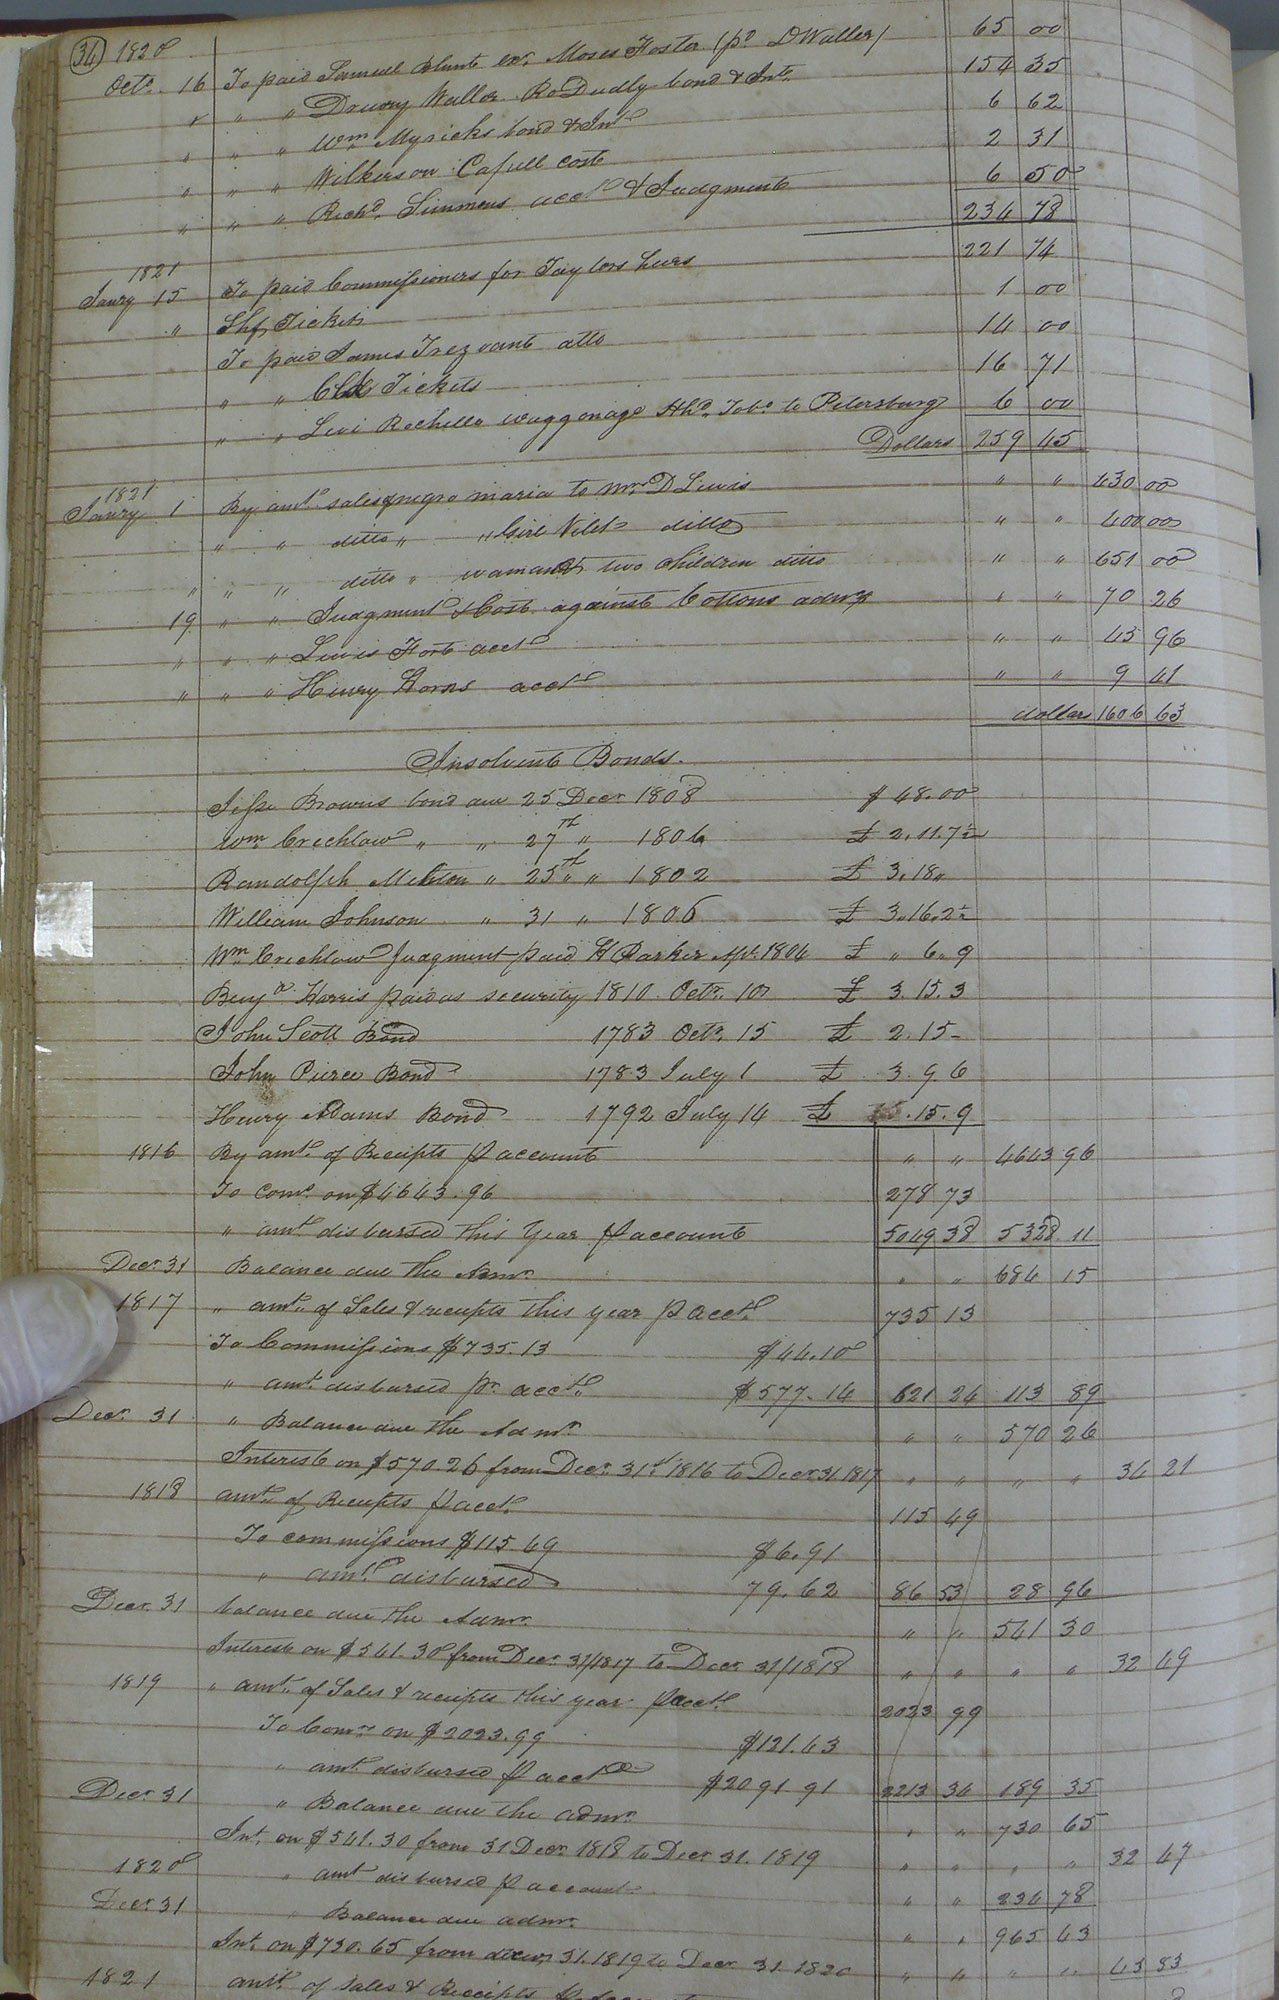 34 1820
Octo. 16 To paid Samuel Blunt exr. Moses Foster (pd D Waller) 65 00
" " " Drury Waller Ro Dudly bond & Intr. 154 35
" " " Wm Myricks bond & Int 6 62
" " " Wilkerson Capell cost 2 31
" " " Richd. Simmons acct & Judgment 6 50
234 78
1821
Jany 15 To paid Commissioners for Taylors heirs 221 74
" Shf Tickets 1 00
To paid James Trezvant atto 14 00
" " Clk Tickets 16 71
" " Levi Rochelle waggonage Hhd. Tobo. to Petersburg 6 00
Dollars 259 45
1821
Jany 1 By amt. sales negro maria to Mr D Lewis " " 430 00
" " ditto " " Girl Vilet ditto " " 400 00
" " " ditto " woman & two children ditto " " 651 00
19 " " Judgment & Cost against Cottons admr " " 70 26
" " " Lewis Fort acct " " 43 96
" " " Henry Horns acct " " 9 41
dollars 1604 63
Insolvent Bonds.
Jesse Browns bond due 25 Decr 1808 $ 48.00
Wm Crichlow " " 27th " 1804 £ 2.11.7½
Randolph Melton " 25th " 1802 £ 3.18"
William Johnson " 31 " 1806 £ 3.16.2½
Wm Crichlow Judgment paid H Parker Apr. 1804 £ " 6.9
Benjn Harris paid as security 1810 Octr. 10 £ 3.15.3
John Scott Bond 1783 Octr. 15 £ 2.15-
John Pierce Bond 1783 July 1 £ 3.9.6
Henry Adams Bond 1792 July 14 £ .15.9
1816 By amt. of Receipts P account " " 4643 96
To coms on $4643.96 278 73
" amt disbursed this Year P account 5049 38 5328 11
Decr. 31 Balance due the Admr. " " 684 15
1817 " amt. of Sales & receipts this year P acct. 735 13
To Commissions $735.13 $44.10
" amt. disbursed Pr acct. $577.14 621 24 113 89
Decr. 31 " Balance due the Admr. " " 570 26
Interest on $570.26 from Decr. 31st 1816 to Decr 31 1817 " " " " 34 21
1818 amt. of Receipts P acct. 115 49
To commissions $115.49 $6.91
" amt. disbursed 79.62 86 53 28 96
Decr. 31 balance due the Admr. " " 541 30
Interest on $541.30 from Decr 31/1817 to Decr 31/1818 " " " " 32 49
1819 " amt. of Sales & receipts this year P acct. 2023 99
To Coms on $2023.99 $121.43
" amt disbursed P acct $2091 91 2213 34 189 35
Decr. 31 " Balance due the admr. " " 730 65
Int. on $541.30 from 31 Decr. 1818 to Decr 31. 1819 " " " " 32 47
1820 " amt disbursed P account " " 234 78
Decr. 31 " Balance due admr. " " 965 43
Int. on $730.65 from decr. 31. 1819 to Decr 31. 1820 " " " " 43 83
1821 amt. of Sales & Receipts P